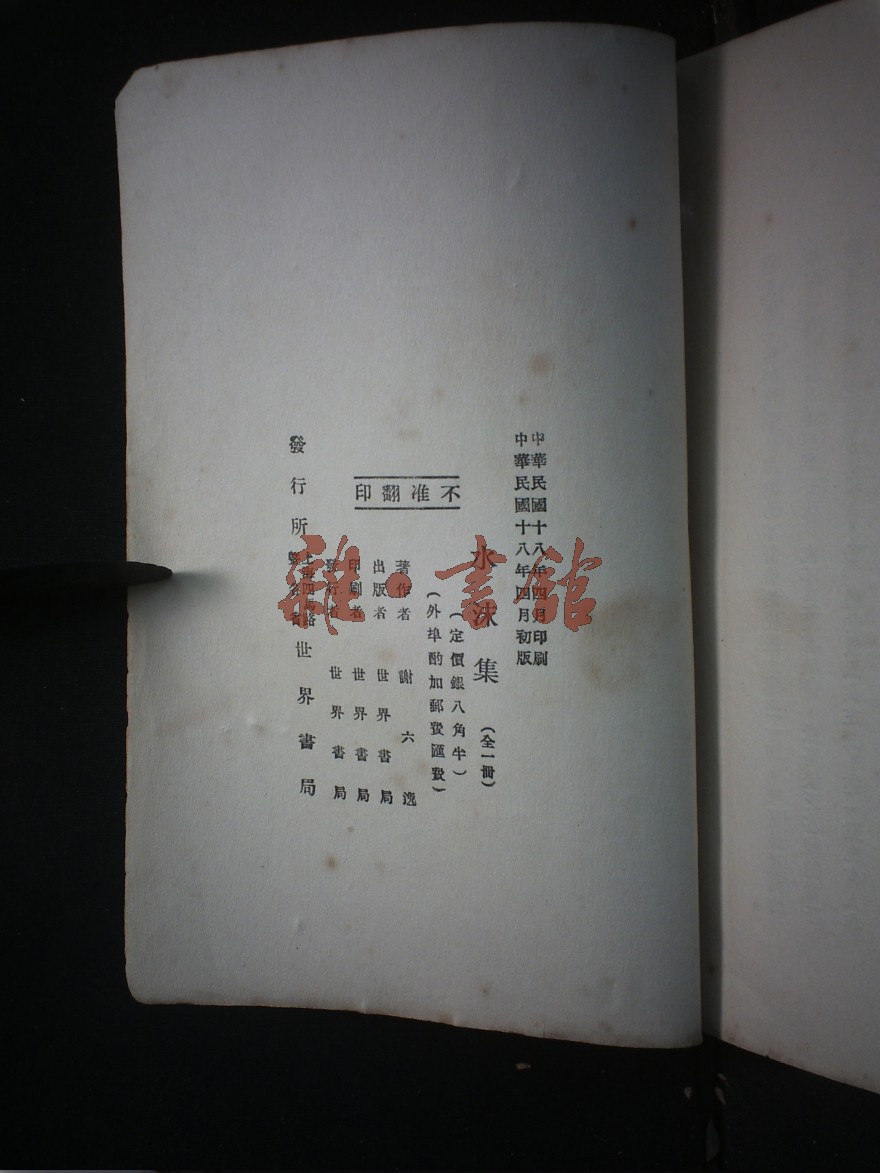 中華民國十八年四月印刷
中華民國十八年四月初版
水沫集 (全一冊)
(定價銀八角半)
(外埠酌加郵費匯費)
不准翻印
著作者 謝六逸
出版者 世界書局
印刷者 世界書局
發行者 世界書局
發行所 上海四馬路 世界書局
雜·書館